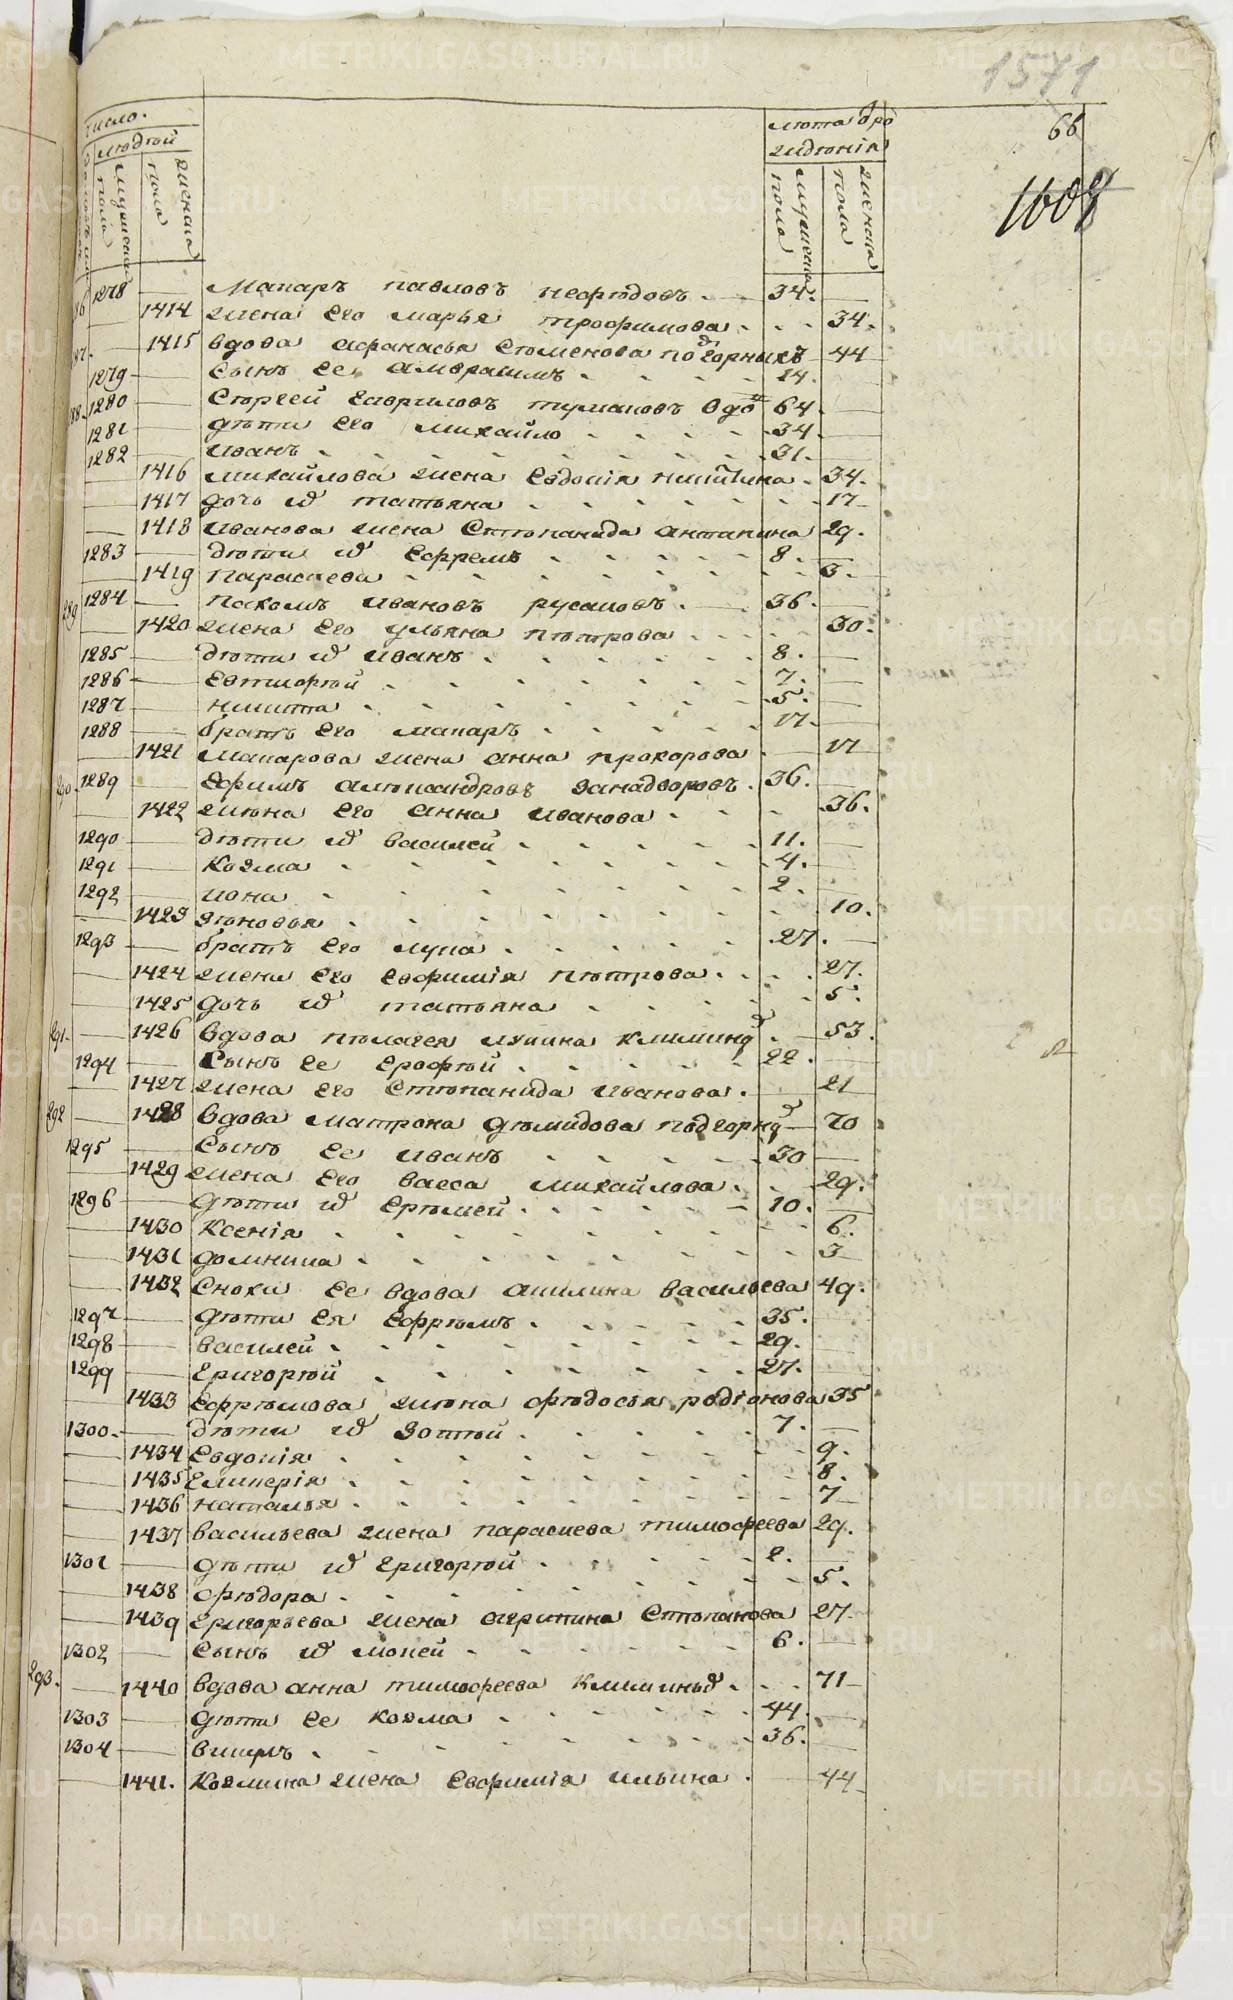 1571
66
1604
число.
людей
мужеска пола
женска пола
лета рождения
мужеска пола
женска пола
86 1278 — Макаръ павловъ нефедовъ. — 34. —
— 1414 жена его марья трофимова 34.
87. — 1415 вдова афанасья Семенова подгорныхъ 44
1279 — Сынъ ее амбрасимъ 24.
88. 1280 — Сергей гавриловъ тумановъ вдо 64. —
1281 — дети его михайло 34. —
1282 — иванъ 31. —
— 1416 михайлова жена Евдокия никитина 34.
— 1417 дочь их татьяна 17
— 1418 иванова жена Степанида антипина 29.
1283 — дети их Ефремъ 8. —
— 1419 параскева 3.
289 1284 — пахомъ ивановъ русаковъ. 36. —
— 1420 жена его ульяна петрова 30.
1285 — дети их иванъ 8. —
1286 — Евтифей 7. —
1287 — никита 5. —
1288 — братъ его макаръ 17. —
— 1421 макарова жена анна прохорова 17
290. 1289 — Ефимъ александровъ занадворовъ. 36.
— 1422 жена его анна иванова 36.
1290 — дети их василей 11. —
1291 — Козма 4. —
1292 — иона 2. —
— 1423 зеновья 10.
1293 — братъ его лупа 27. —
— 1424 жена его евфимія петрова 27.
— 1425 дочь их татьяна 5.
291. — 1426 вдова пелагея лупина Климиных 53.
1294 — Сынъ ее ерофей 22. —
— 1427 жена его Степанида иванова. 21
292 — 1428 вдова матрона демидова подгорных 70
1295 — Сынъ ее иванъ 30 —
— 1429 жена его васса михайлова 29.
1296 — дети их еремей 10. —
— 1430 Ксенія 6.
— 1431 домника 3
— 1432 Сноха ее вдова акилина васильева 49.
1297 — дети ея ефремъ 35. —
1298 — василей 29. —
1299 — григорей 27. —
1433 ефремова жена федосья родионова 35
1300. — дети их зотей 7. —
— 1434 евдокія 9.
— 1435 Гликерія 8.
— 1436 наталья 7
— 1437 васильева жена параскева тимофеева 29.
1301 — дети их григорей 2. —
— 1438 федора 5.
— 1439 григорьева жена агрипина Степанова 27
1302 — Сынъ их мокей 6. —
293. — 1440 вдова анна тимофеева Климиных 71
1303 — дети ее козма 44. —
1304 — викулъ 36. —
— 1441. Козмина жена Евфимія ильина. 44